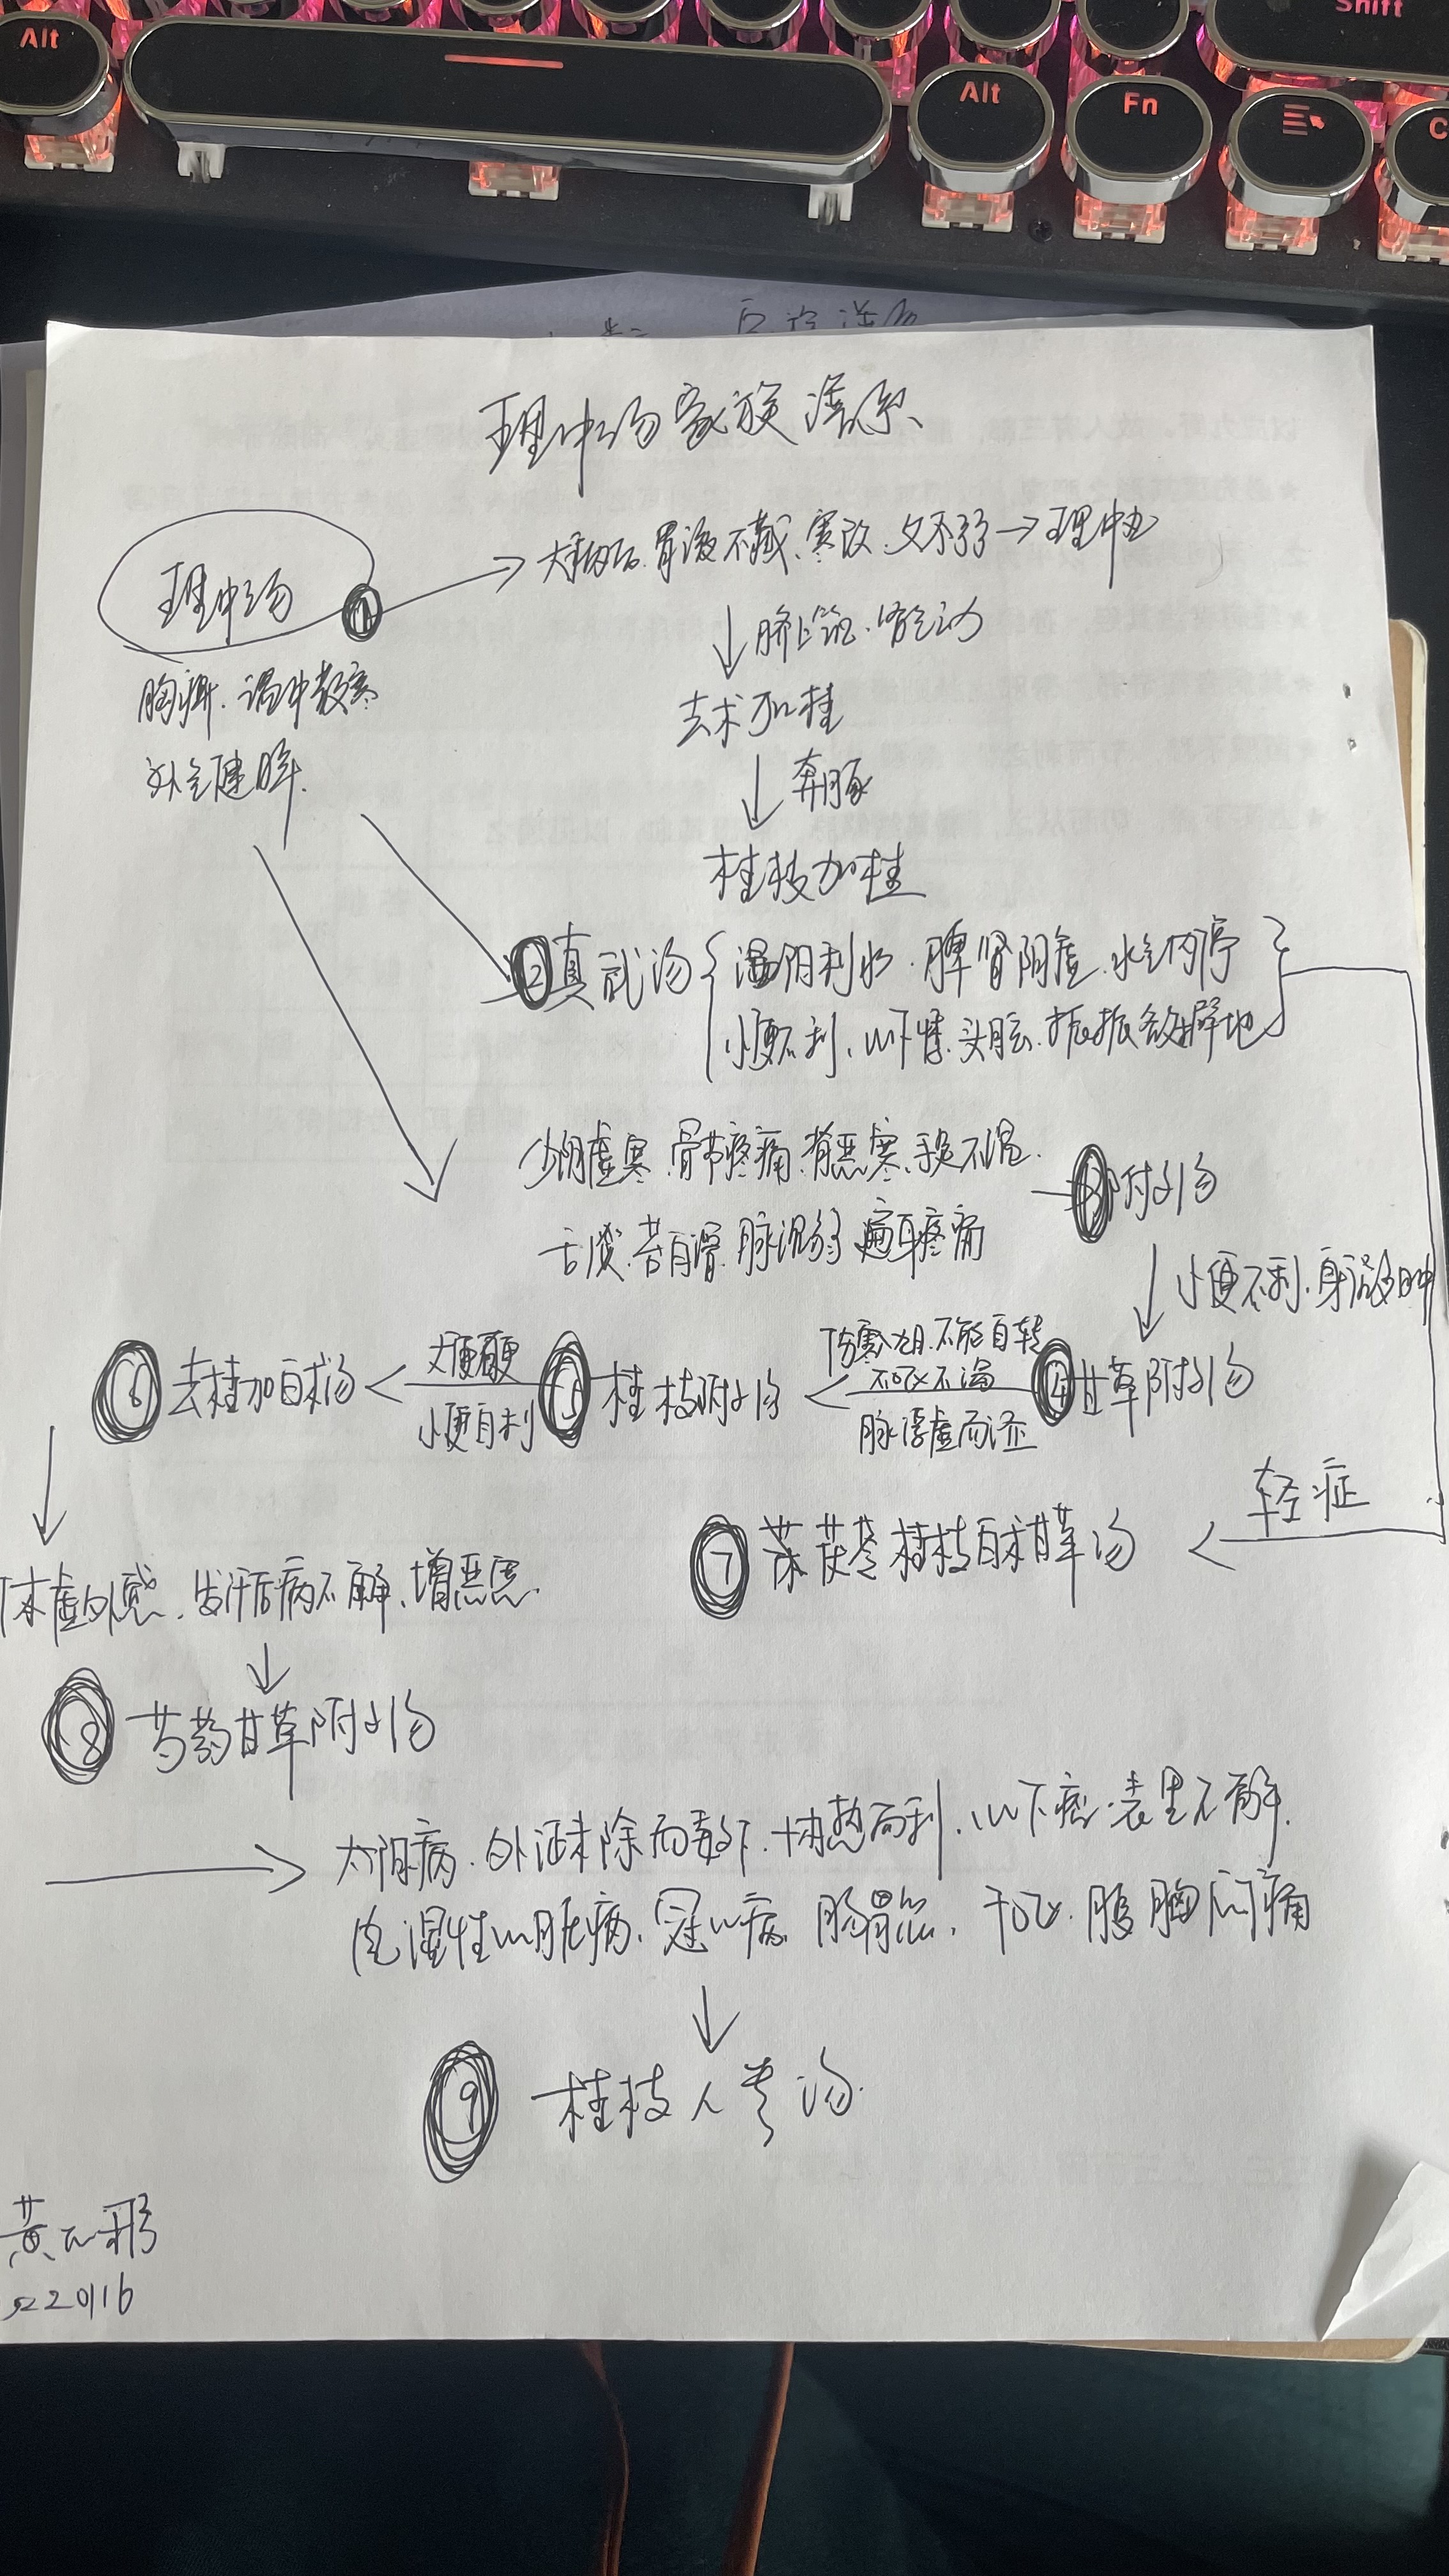 Shift
Alt
Alt
Fn
C
理中汤家族谱系
理中汤
1
大病后.胃液不藏.寒故.久不了了→理中丸
胸痹.温中散寒
补气健脾.
脐上筑.肾气动
去术加桂
奔豚
桂枝加桂
2 真武汤
温阳利水.脾肾阳虚.水气内停
小便不利、心下悸.头眩.振振欲擗地
少阴虚寒.骨节疼痛.背恶寒.手足不温.
舌淡.苔白滑.脉沉弱 遍身疼痛
3 附子汤
小便不利.身微肿
4 甘草附子汤
伤寒八九日.不能自转
不呕不渴
脉浮虚而涩
5 桂枝附子汤
大便硬
小便自利
6 去桂加白术汤
轻症
7 茯苓桂枝白术甘草汤
体虚外感、发汗后病不解、增恶寒.
8 芍药甘草附子汤
太阳病.外证未除而数下.协热而利.心下痞.表里不解.
风湿性心脏病.冠心病 肠胃炎.干呕.腹胸闷痛
9 桂枝人参汤
黄
220116